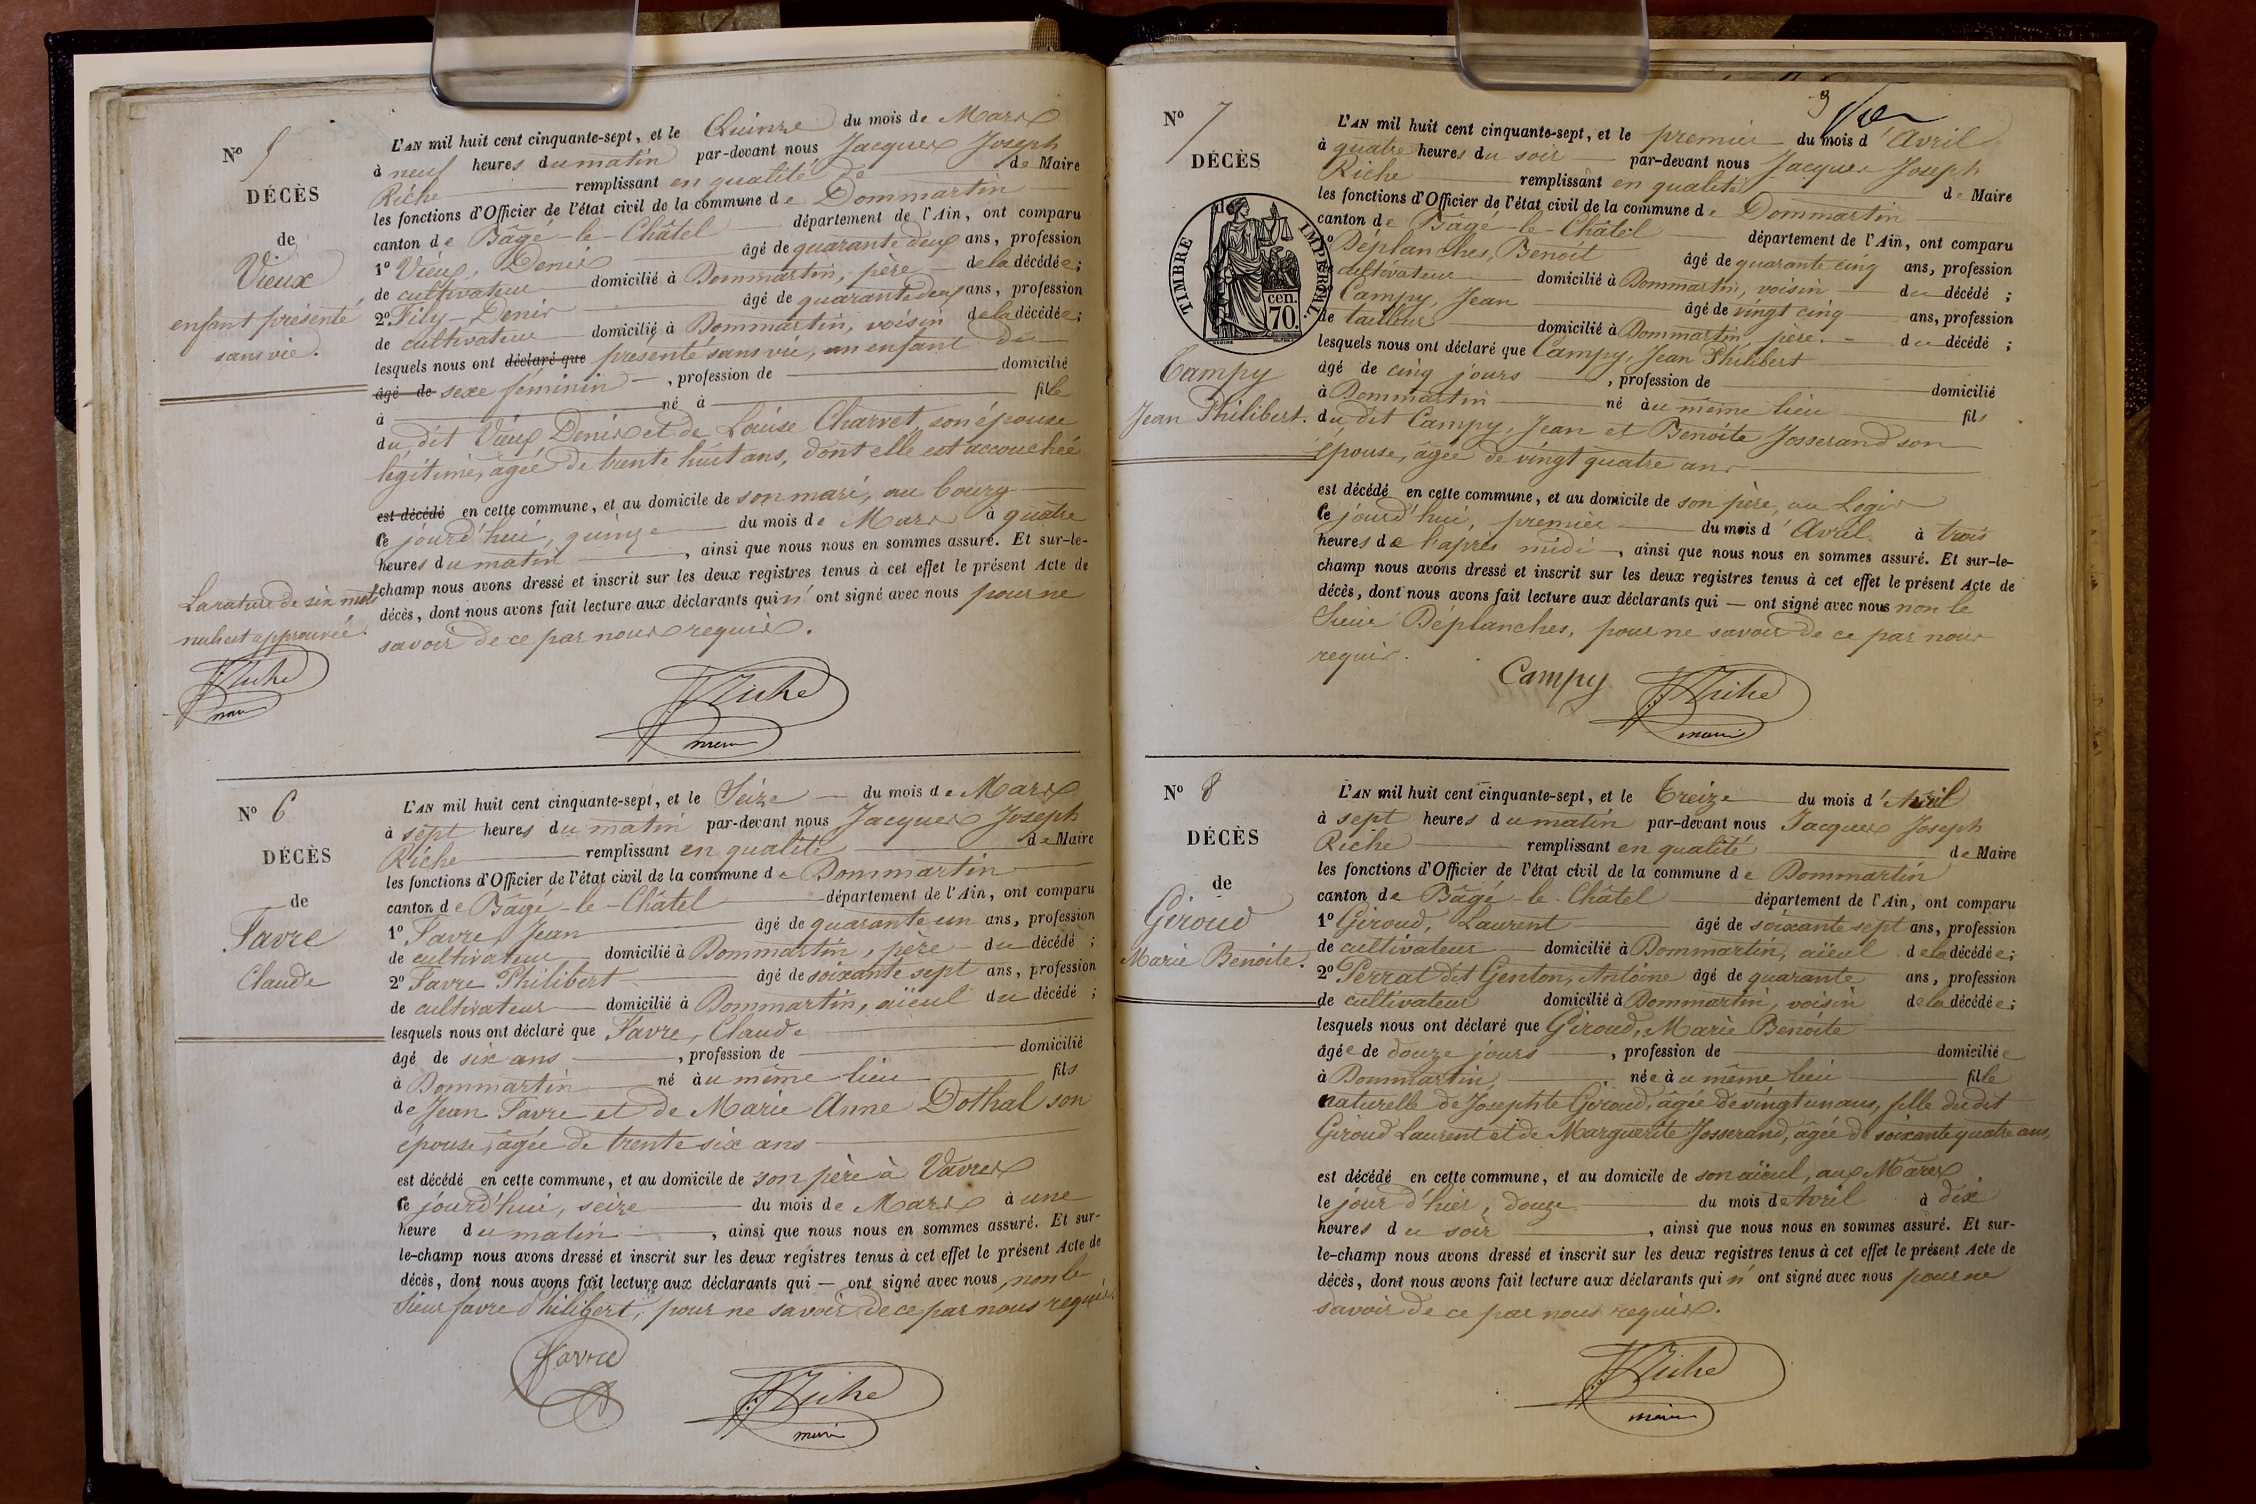 Nº 5
DÉCÈS
de
Vieux
enfant présenté
sans vie.
L'AN mil huit cent cinquante-sept, et le Quinze du mois de Mars
à neuf heures du matin par-devant nous Jacques Joseph
Riche remplissant en qualité de Maire
les fonctions d'Officier de l'état civil de la commune de Dommartin
canton de Bâgé-le-Châtel département de l'Ain, ont comparu
1º Vieux, Denis âgé de quarante deux ans, profession
de cultivateur domicilié à Dommartin, père de la décédée;
2º Fily Denis âgé de quarante deux ans, profession
de cultivateur domicilié à Dommartin, voisin de la décédée;
lesquels nous ont déclaré que presenté sans vie, un enfant du
âgé de sexe féminin, profession de domicilié
à né à fille
du dit Vieux Denis et de Louise Charvet, son épouse
légitime, âgée de trente huit ans, dont elle est accouchée
est décédé en cette commune, et au domicile de son mari, au bourg
ce jourd'hui, quinze du mois de Mars à quatre
heures du matin, ainsi que nous nous en sommes assuré. Et sur-le-
champ nous avons dressé et inscrit sur les deux registres tenus à cet effet le présent Acte de
décès, dont nous avons fait lecture aux déclarants qui n'ont signé avec nous pour ne
savoir de ce par nous requis.
La rature de six mots
nuls est approuvée.
Riche
maire
Riche
maire
Nº 6
DÉCÈS
de
Favre
Claude
L'AN mil huit cent cinquante-sept, et le Seize du mois de Mars
à sept heures du matin par-devant nous Jacques Joseph
Riche remplissant en qualité de Maire
les fonctions d'Officier de l'état civil de la commune de Dommartin
canton de Bâgé-le-Châtel département de l'Ain, ont comparu
1º Favre, Jean âgé de quarante un ans, profession
de cultivateur domicilié à Dommartin, père du décédé;
2º Favre Philibert âgé de soixante sept ans, profession
de cultivateur domicilié à Dommartin, aïeul du décédé;
lesquels nous ont déclaré que Favre, Claude
âgé de six ans, profession de domicilié
à Dommartin né au même lieu fils
de Jean Favre et de Marie Anne Dothal son
épouse, âgée de trente six ans
est décédé en cette commune, et au domicile de son père à Vavres
ce jourd'hui, seize du mois de Mars à une
heure du matin, ainsi que nous nous en sommes assuré. Et sur-
le-champ nous avons dressé et inscrit sur les deux registres tenus à cet effet le présent Acte de
décès, dont nous avons fait lecture aux déclarants qui ont signé avec nous, non le
Sieur favre Philibert, pour ne savoir de ce par nous requis
Favre
Riche
maire
Nº 7
DÉCÈS
de
TIMBRE IMPÉRIAL
70 cen.
Campy
Jean Philibert.
9
L'AN mil huit cent cinquante-sept, et le premier du mois d'Avril
à quatre heures du soir par-devant nous Jacques Joseph
Riche remplissant en qualité de Maire
les fonctions d'Officier de l'état civil de la commune de Dommartin
canton de Bâgé-le-Châtel département de l'Ain, ont comparu
1º Déplanches, Benoit âgé de quarante cinq ans, profession
cultivateur domicilié à Dommartin, voisin du décédé;
Campy, Jean âgé de vingt cinq ans, profession
de tailleur domicilié à Dommartin, père du décédé;
lesquels nous ont déclaré que Campy, Jean Philibert
âgé de cinq jours, profession de domicilié
à Dommartin né au même lieu fils
du dit Campy, Jean et Benoite Josserand son
épouse, âgée de vingt quatre ans
est décédé en cette commune, et au domicile de son père, au Logis
ce jourd'hui, premier du mois d'Avril. à trois
heures de l'après midi, ainsi que nous nous en sommes assuré. Et sur-le-
champ nous avons dressé et inscrit sur les deux registres tenus à cet effet le présent Acte de
décès, dont nous avons fait lecture aux déclarants qui ont signé avec nous non le
Sieur Déplanches, pour ne savoir de ce par nous
requis.
Campy
Riche
maire
Nº 8
DÉCÈS
de
Giroud
Marie Benoite.
L'AN mil huit cent cinquante-sept, et le Treize du mois d'Avril
à sept heures du matin par-devant nous Jacques Joseph
Riche remplissant en qualité de Maire
les fonctions d'Officier de l'état civil de la commune de Dommartin
canton de Bâgé-le-Châtel département de l'Ain, ont comparu
1º Giroud, Laurent âgé de soixante sept ans, profession
de cultivateur domicilié à Dommartin, aïeul de la décédée;
2º Perrat dit Genton, Antoine âgé de quarante ans, profession
de cultivateur domicilié à Dommartin, voisin de la décédée;
lesquels nous ont déclaré que Giroud, Marie Benoite
âgée de douze jours, profession de domiciliée
à Dommartin, née au même lieu fille
naturelle de Josephte Giroud, âgée de vingt un ans, fille du dit
Giroud Laurent et de Marguerite Josserand, âgée de soixante quatre ans,
est décédé en cette commune, et au domicile de son aïeul, aux Mares
le jour d'hier, douze du mois de Avril à dix
heures du soir, ainsi que nous nous en sommes assuré. Et sur-
le-champ nous avons dressé et inscrit sur les deux registres tenus à cet effet le présent Acte de
décès, dont nous avons fait lecture aux déclarants qui n'ont signé avec nous pour ne
savoir de ce par nous requis.
Riche
maire